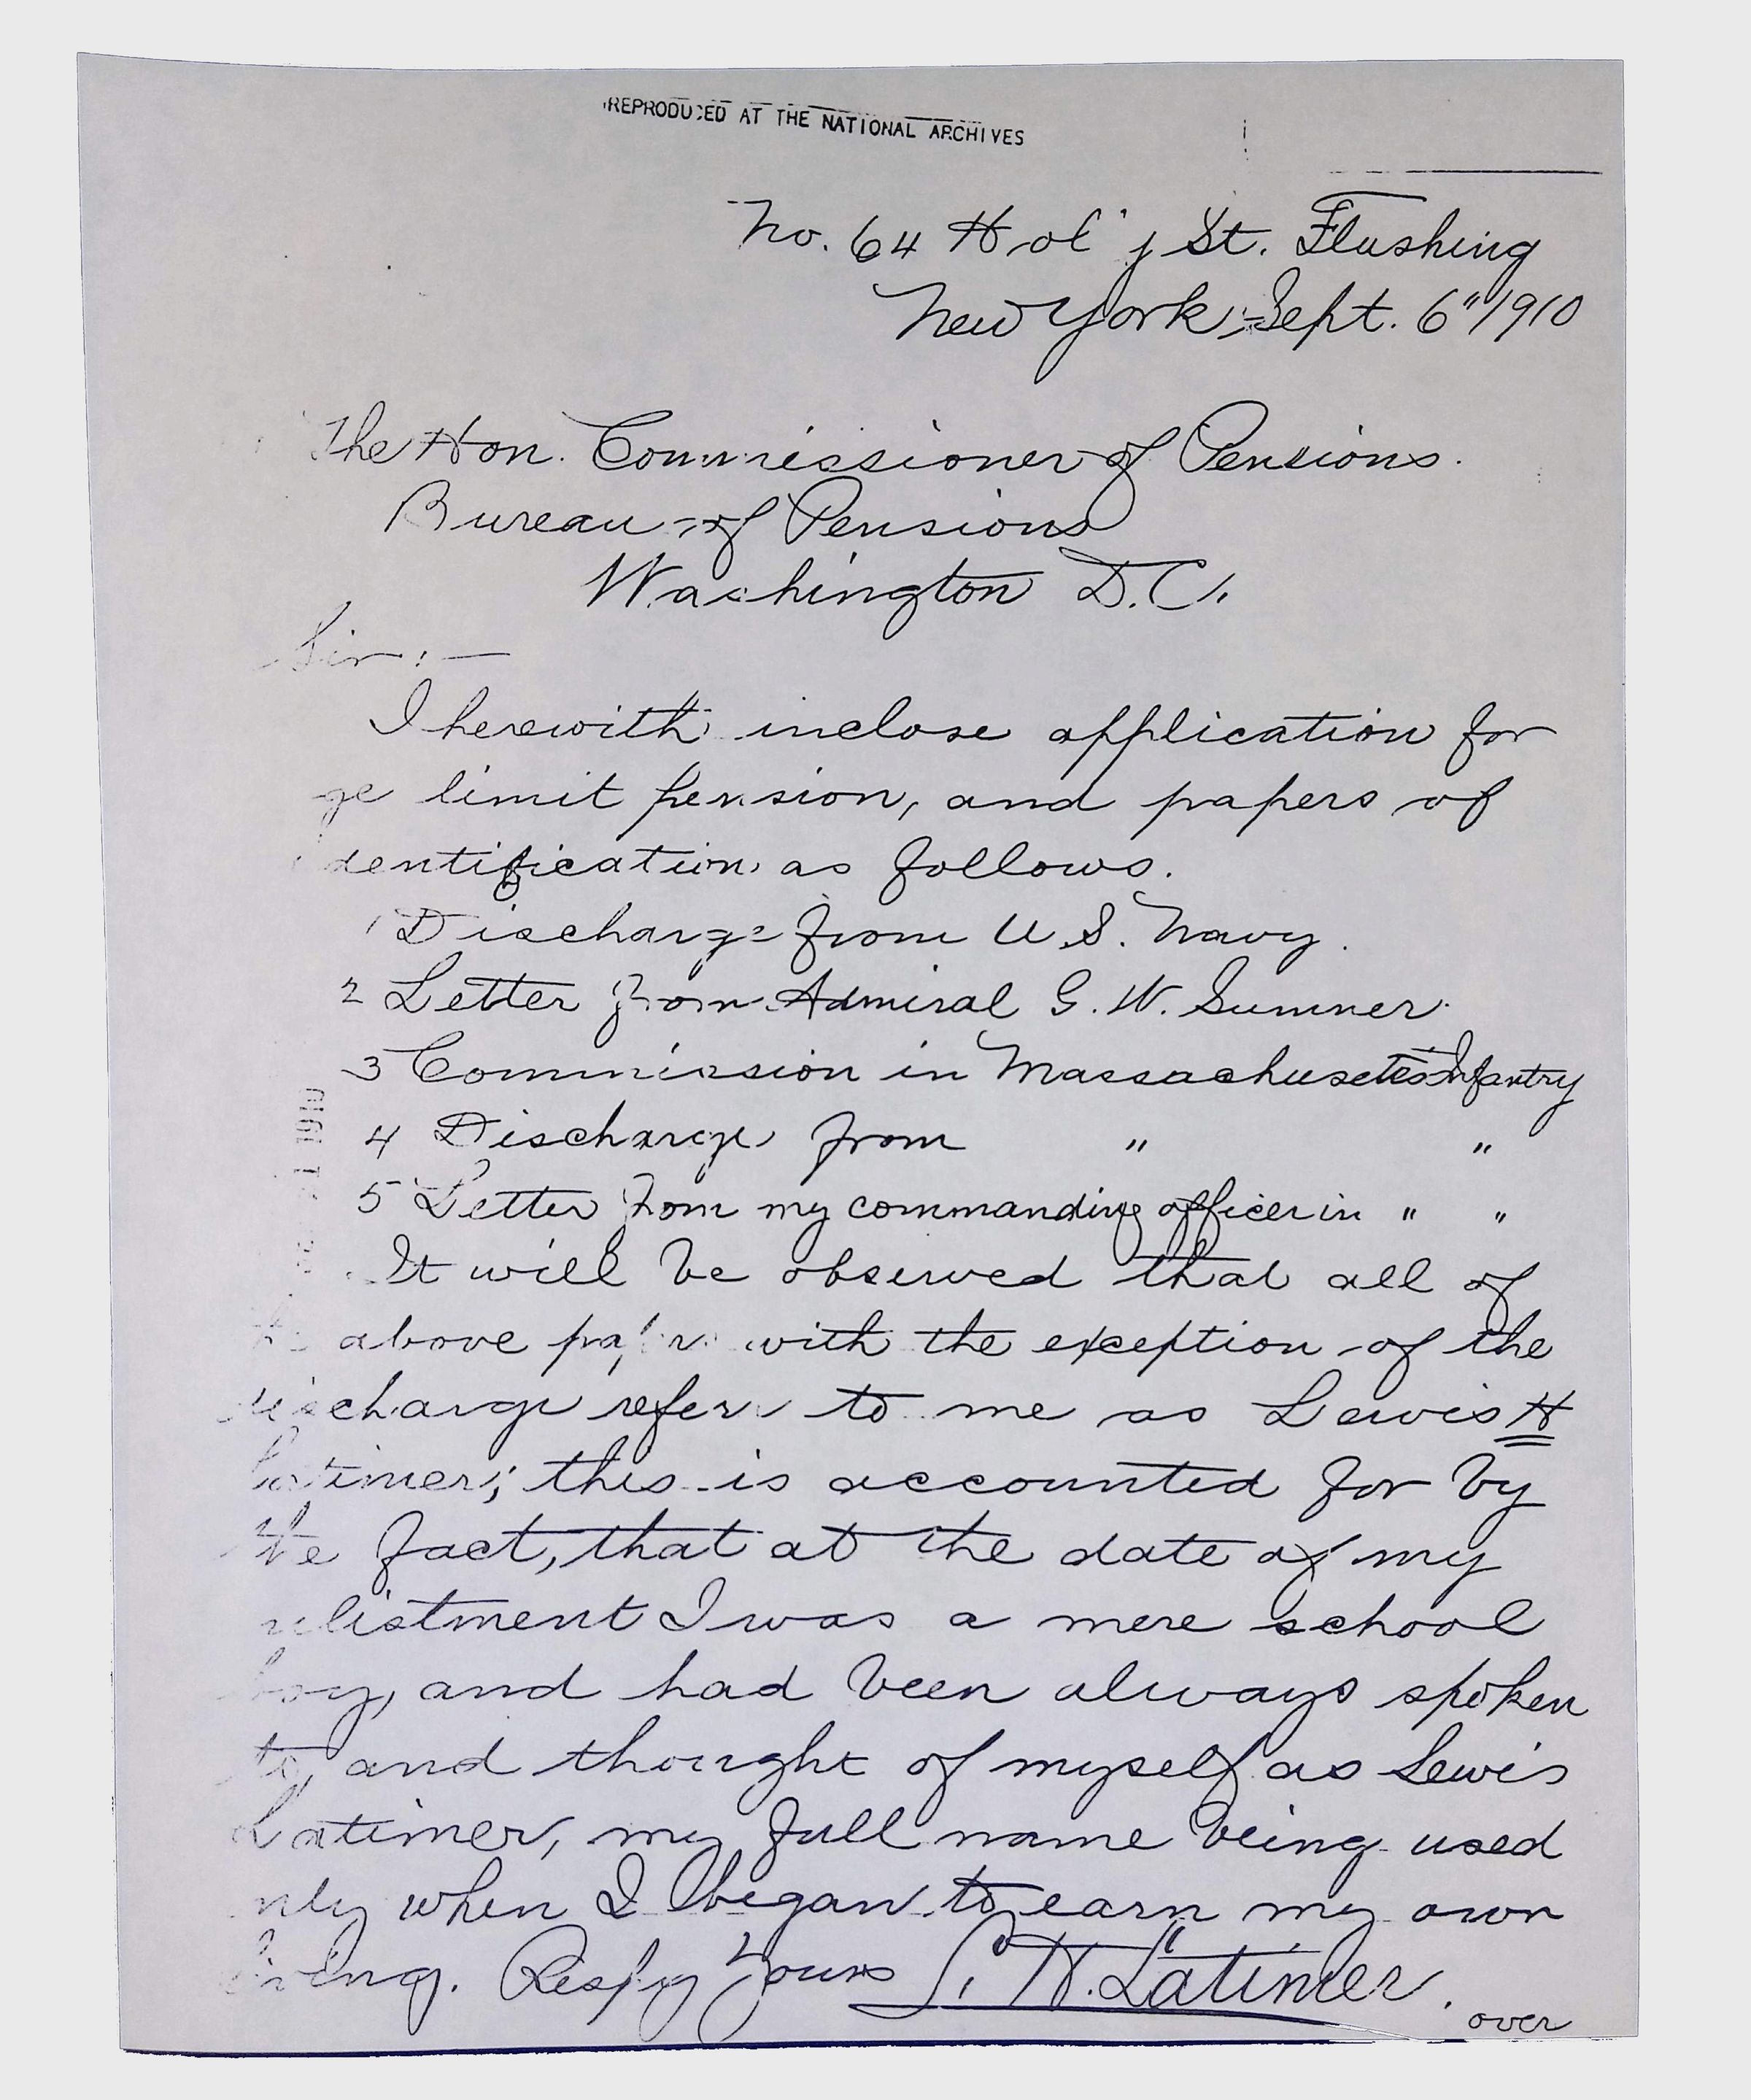 REPRODUCED AT THE NATIONAL ARCHIVES
No. 64 St. Flushing
New York, Sept. 6" 1910
The Hon. Commissioner of Pensions.
Bureau of Pensions
Washington D.C.
Sir:—
I herewith inclose application for
ge limit pension, and papers of
identification as follows.
1 Discharge from U.S. Navy.
2 Letter from Admiral G. W. Sumner.
3 Commission in Massachusetts Infantry
4 Discharge from " "
5 Letter from my commanding officer in " "
1910
It will be observed that all of
the above papers with the exception of the
discharge refer to me as Lewis H
Latimer; this is accounted for by
the fact, that at the date of my
nlistment I was a mere school
boy, and had been always spoken
to, and thought of myself as Lewis
Latimer, my full name being used
nly when I began to earn my own
living. Respy Yours L. H. Latimer.
over